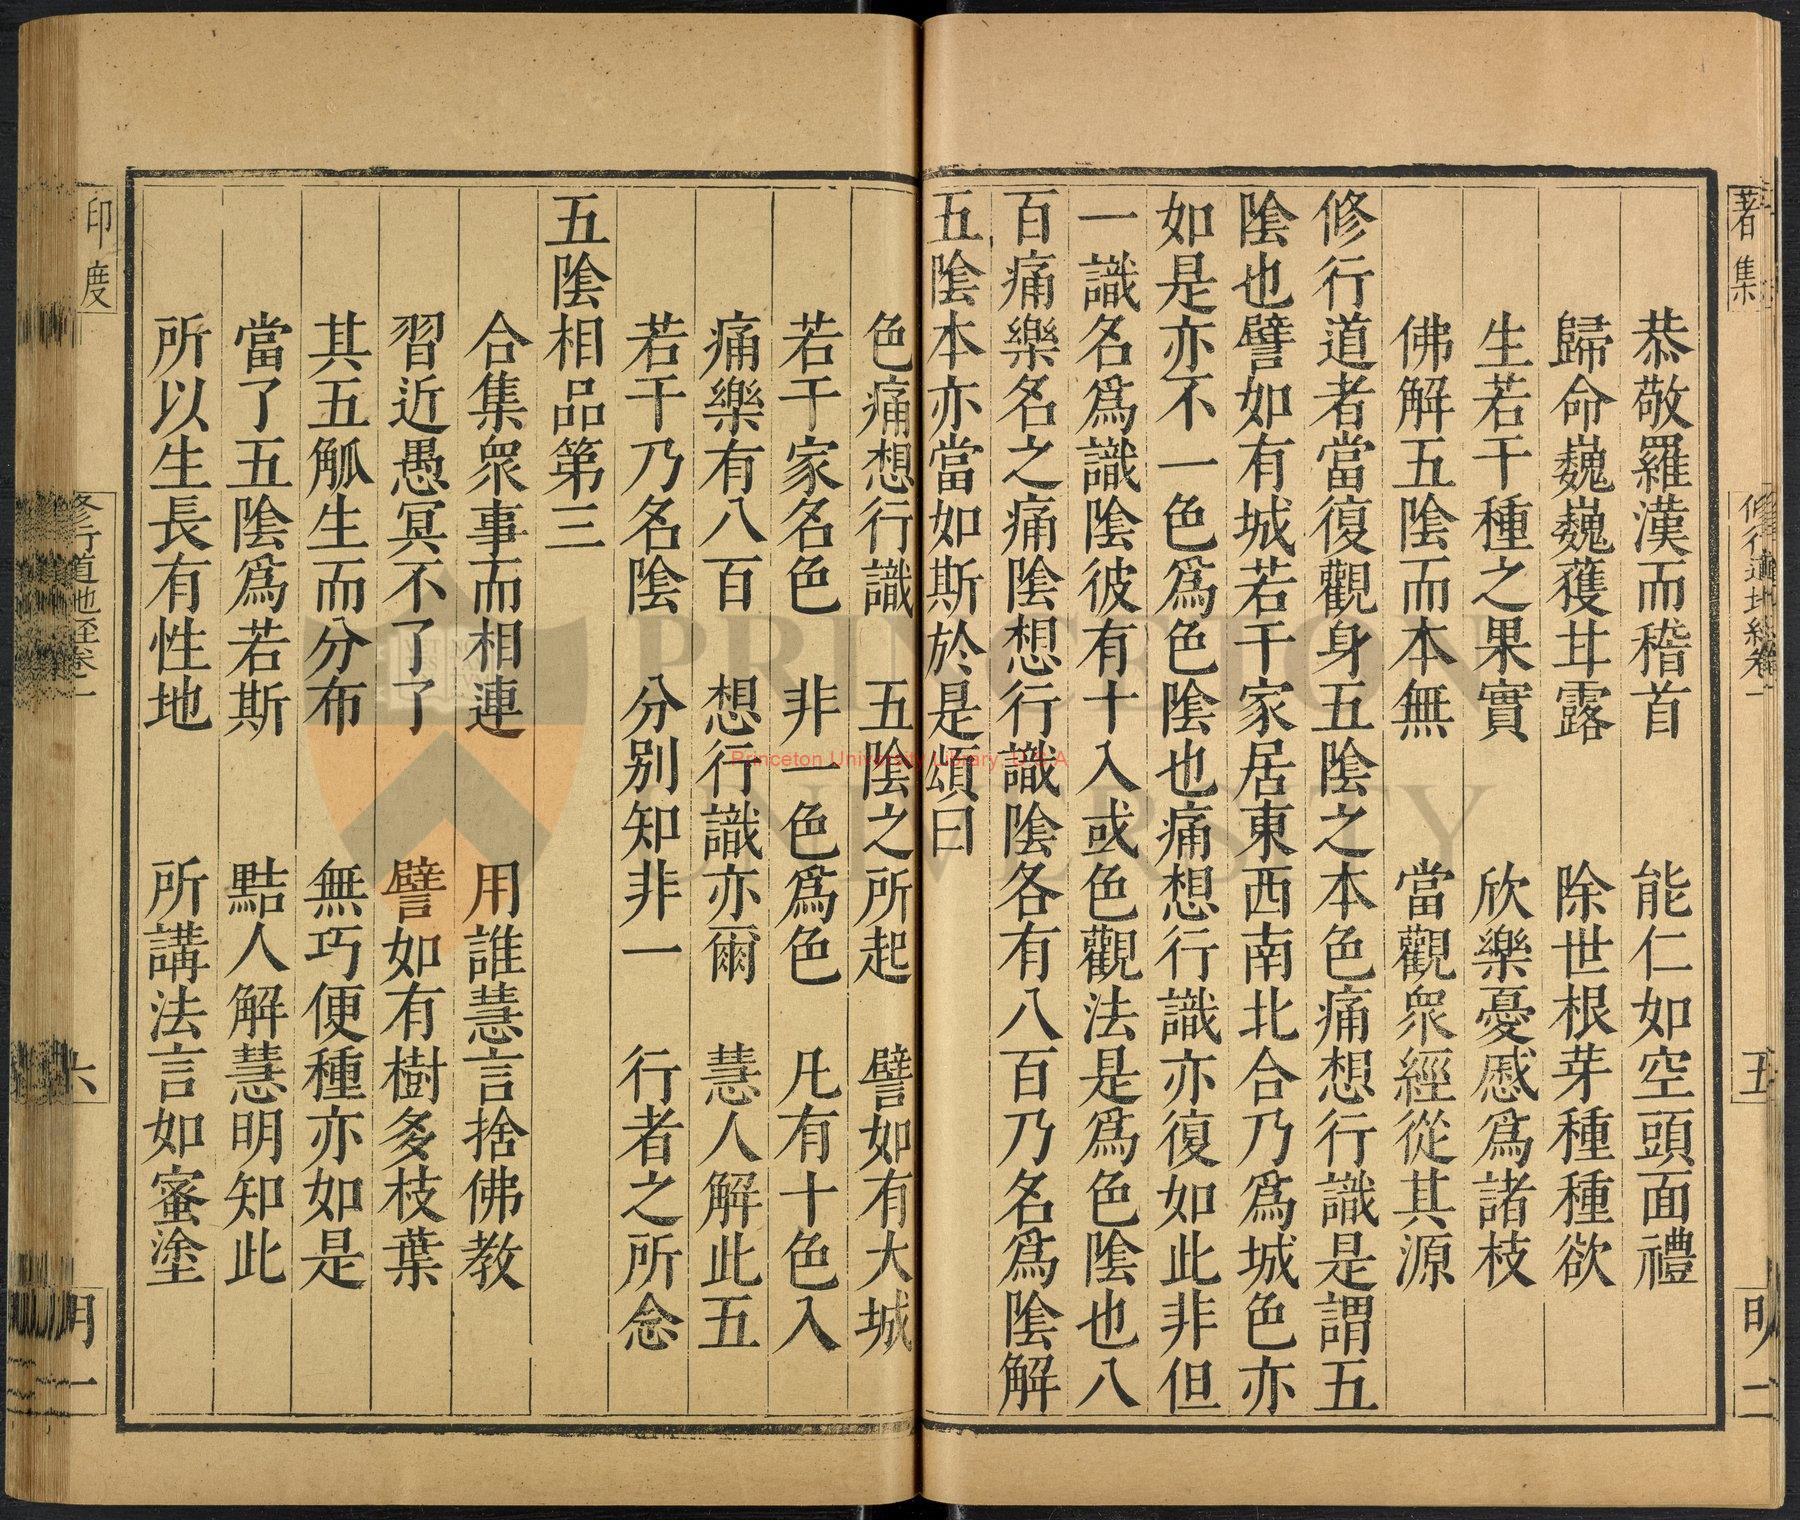 著集
修行道地經卷一
五
明一
恭敬羅漢而稽首　能仁如空頭面禮
歸命巍巍獲甘露　除世根芽種種欲
生若干種之果實　欣樂憂慼爲諸枝
佛解五陰而本無　當觀衆經從其源
修行道者當復觀身五陰之本色痛想行識是謂五
陰也譬如有城若干家居東西南北合乃爲城色亦
如是亦不一色爲色陰也痛想行識亦復如此非但
一識名爲識陰彼有十入或色觀法是爲色陰也八
百痛樂名之痛陰想行識陰各有八百乃名爲陰解
五陰本亦當如斯於是頌曰
色痛想行識　五陰之所起　譬如有大城
若干家名色　非一色爲色　凡有十色入
痛樂有八百　想行識亦爾　慧人解此五
若干乃名陰　分別知非一　行者之所念
五陰相品第三
合集衆事而相連　用誰慧言捨佛教
習近愚冥不了了　譬如有樹多枝葉
其五觚生而分布　無巧便種亦如是
當了五陰爲若斯　黠人解慧明知此
所以生長有性地　所講法言如蜜塗
印度
修行道地經卷一
六
明一
Princeton University Library, USA
PRINCETON
UNIVERSITY